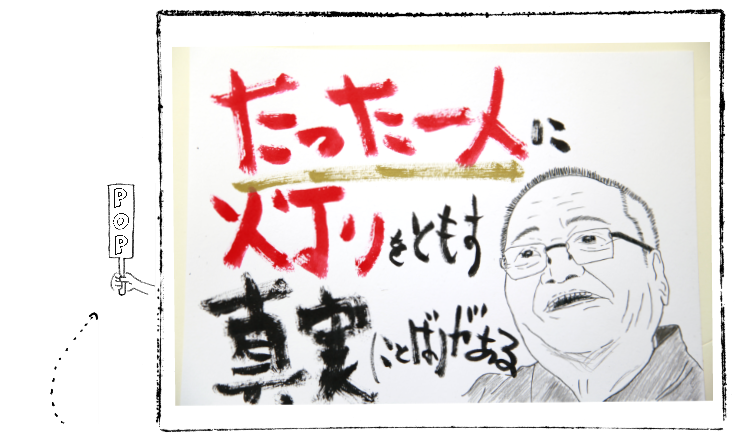 POP
たった一人に
灯りをともす
真実(ことば)がある